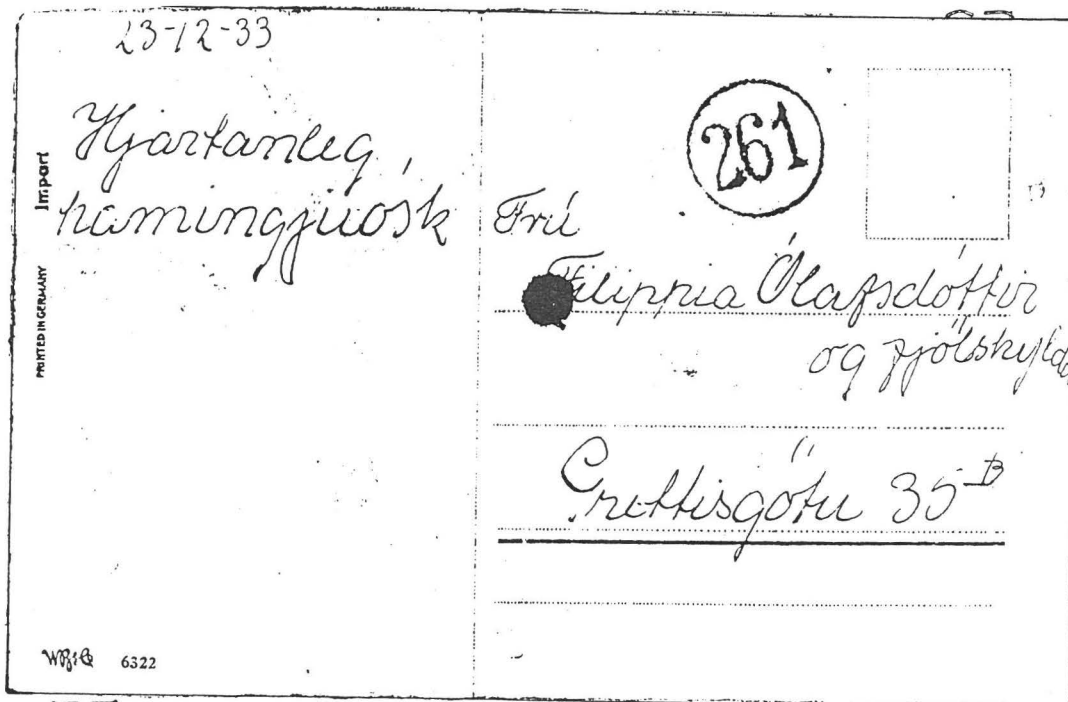 23-12-33
Hjartanleg
hamingjuósk
Import
PRINTED IN GERMANY
6322
261
Frú
Filippia Ólafsdóttir
og fjölskylda
Grettisgötu 35B